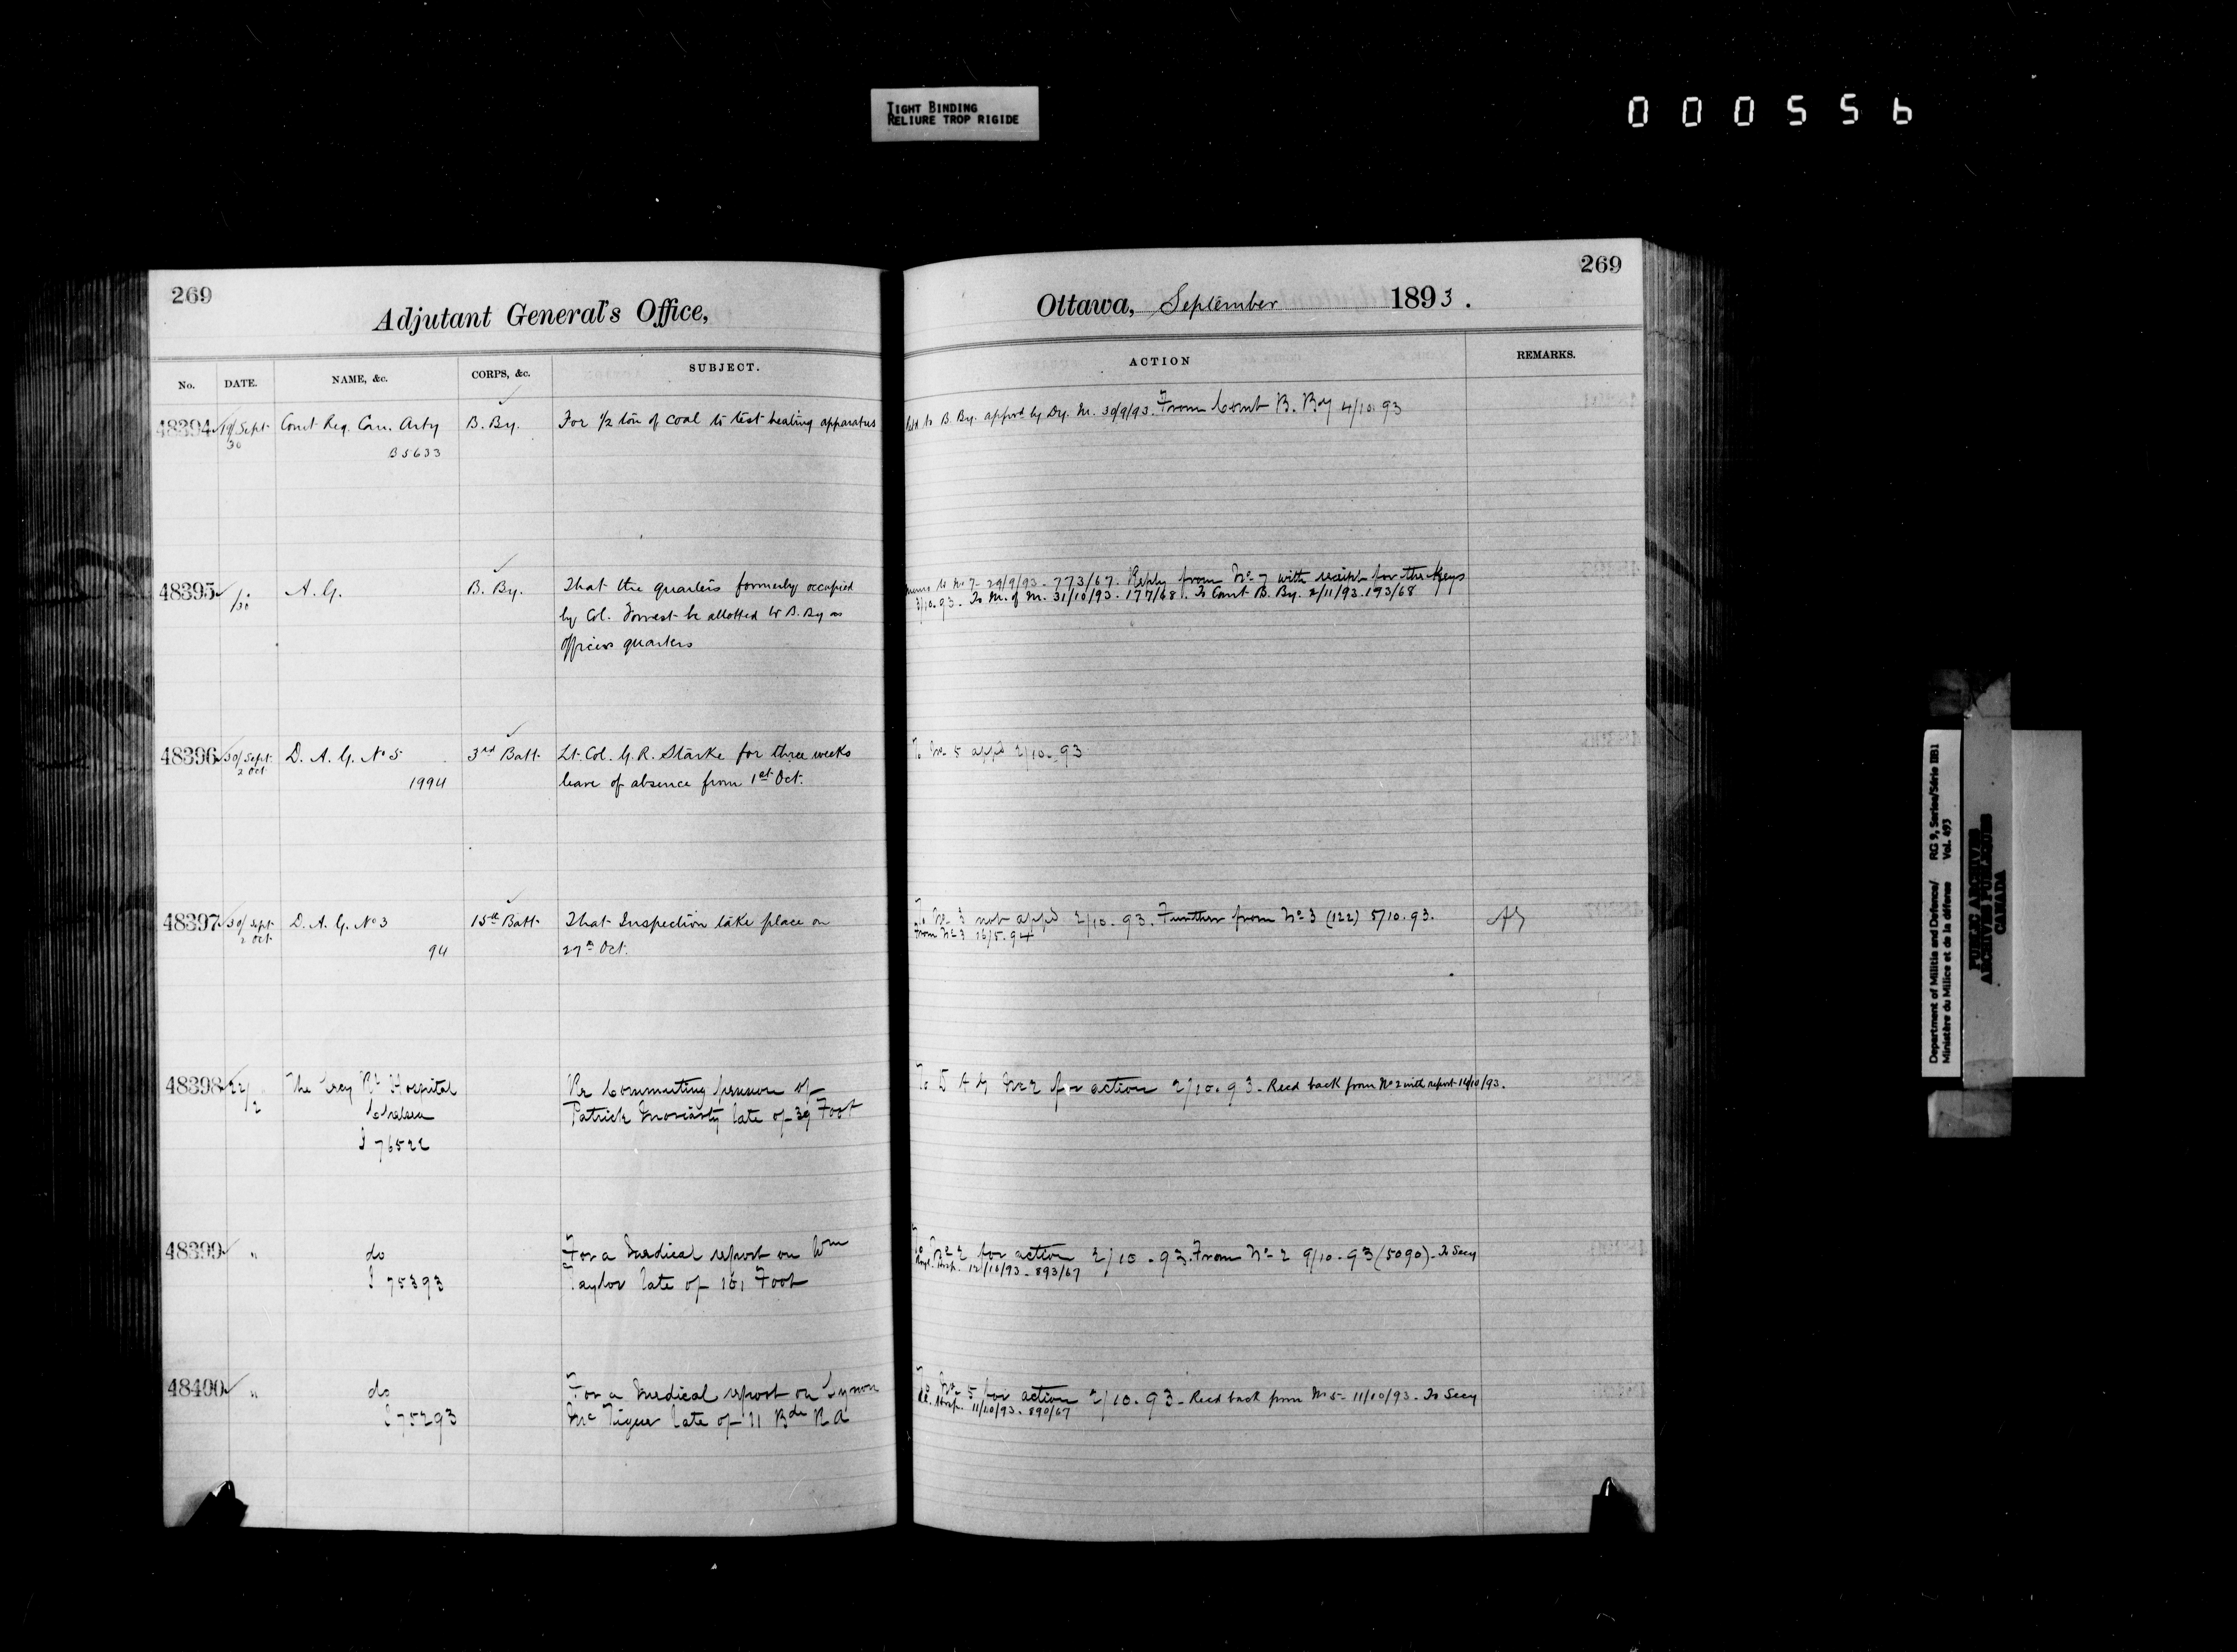 TIGHT BINDING
RELIURE TROP RIGIDE
000556
269
Adjutant General's Office,
No. DATE. NAME, &c. CORPS, &c. SUBJECT.
48394 19/Sept Comt Reg. Can. Arty B. By. For 1/2 ton of coal to test heating apparatus
30 B5633
48395 /30 A. G. B. By. That the quarters formerly occupied
by Col. Forrest be allotted to B. By as
officers quarters
48396 30/Sept D. A. G. No 5 3rd Batt. Lt. Col. G. R. Starke for three weeks
2 Oct. 1994 leave of absence from 1st Oct.
48397 30/Sept D. A. G. No 3 15th Batt. That Inspection take place on
2 Oct. 94 27th Oct.
48398 22/2 The Secy Rl Hospital Re Commuting pension of
Chelsea Patrick Moriarty late of 39 Foot
76522
48399 " do For a medical report on Wm
75393 Taylor late of 101 Foot
48400 " do For a medical report on
75293 late of 11 Bde R A
269
Ottawa, September 1893.
ACTION REMARKS.
to B By. appvd by Dy. M. 30/9/93. From Comt B. By 4/10.93
Memo to No 7- 29/9/93. 773/67. Reply from No 7 with receipt for the Keys
3/10.93. To M. of M. 31/10/93. 177/68. To Comt B. By. 2/11/93. 193/68
To No 5 appd 2/10.93
To No 3 not appd 2/10.93. Further from No 3 (122) 5/10.93.
From No 3 16/5.94
To D A G No 2 for action 2/10.93. Recd back from No 2 with report 16/10/93.
To No 2 for action 2/10.93. From No 2 9/10.93 (5090). To Secy
Hosp. 12/10/93. 893/67
To No 5 for action 2/10.93. Recd back from No 5- 11/10/93. To Secy
Hosp. 11/10/93. 890/67
Department of Militia and Defence/ RG 9, Series/Série IIB1
Ministère du Milice et de la défence Vol. 493
PUBLIC ARCHIVES
ARCHIVES PUBLIQUES
CANADA